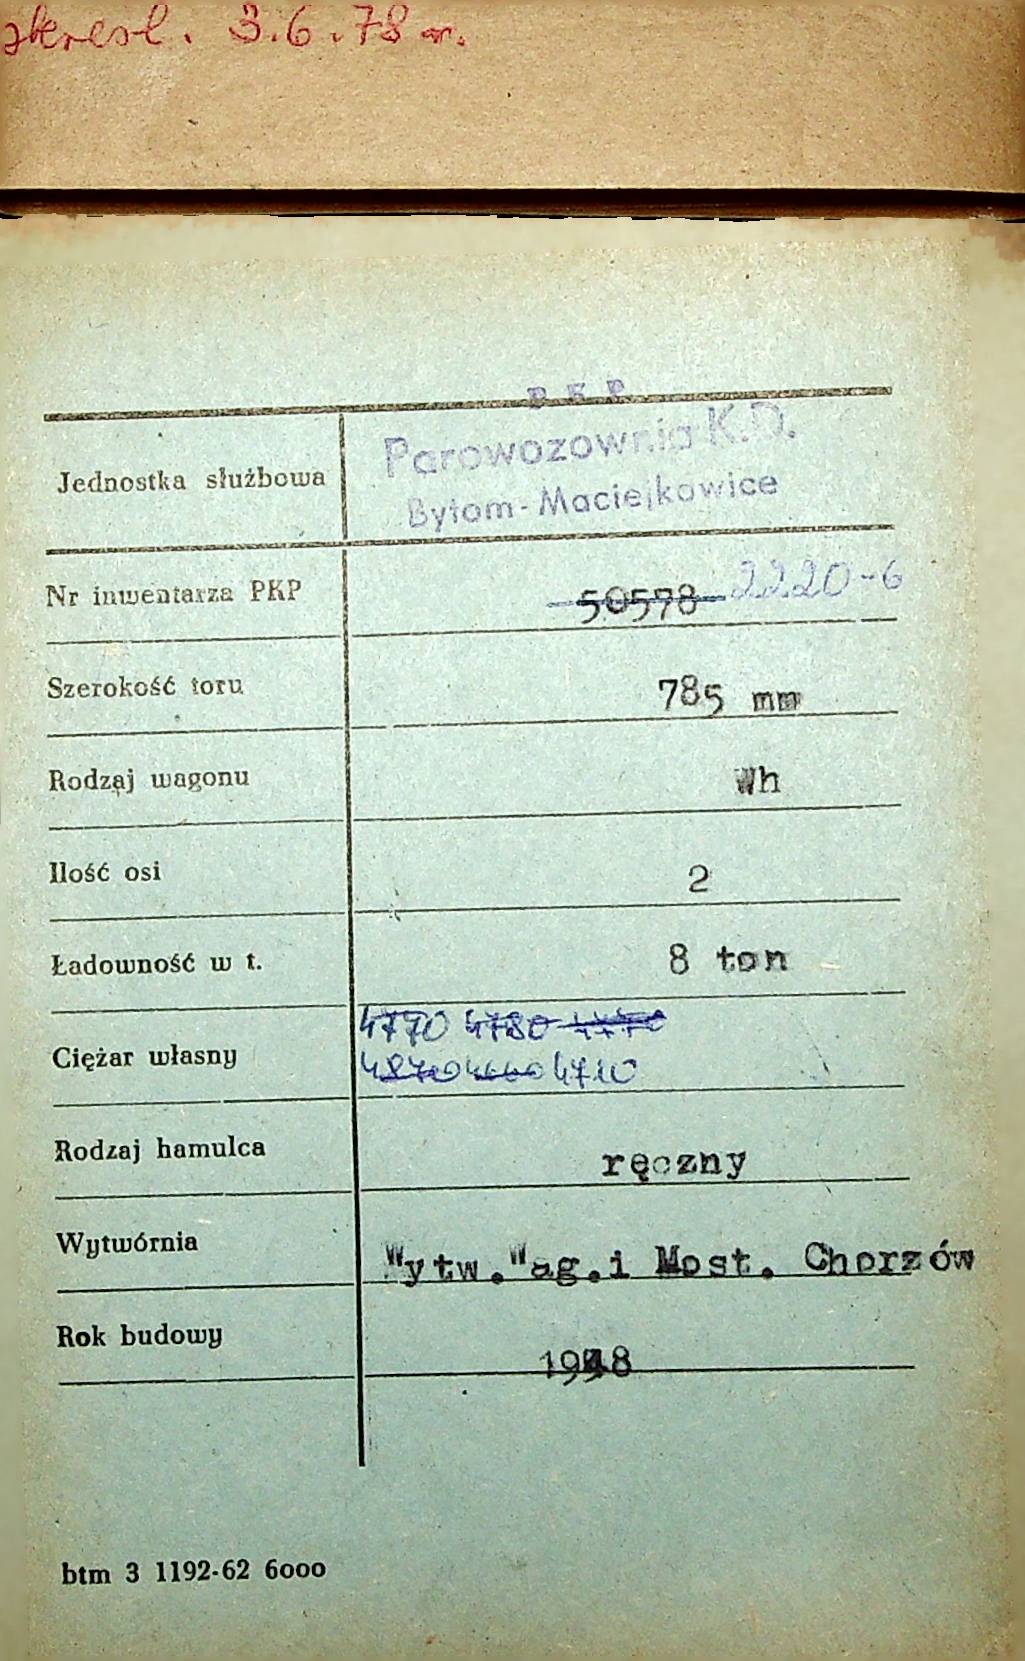 skreśl. 3.6.78 r.
P K P
Parowozownia K.D.
Jednostka służbowa
Bytom-Maciejkowice
Nr inwentarza PKP 50578 2220-6
Szerokość toru 785 mm
Rodzaj wagonu Wh
Ilość osi 2
Ładowność w t. 8 ton
4770 4780 4770
Ciężar własny 4870 4660 4710
Rodzaj hamulca ręczny
Wytwórnia Wytw.Wag.i Most. Chorzów
Rok budowy 1948
btm 3 1192-62 6000